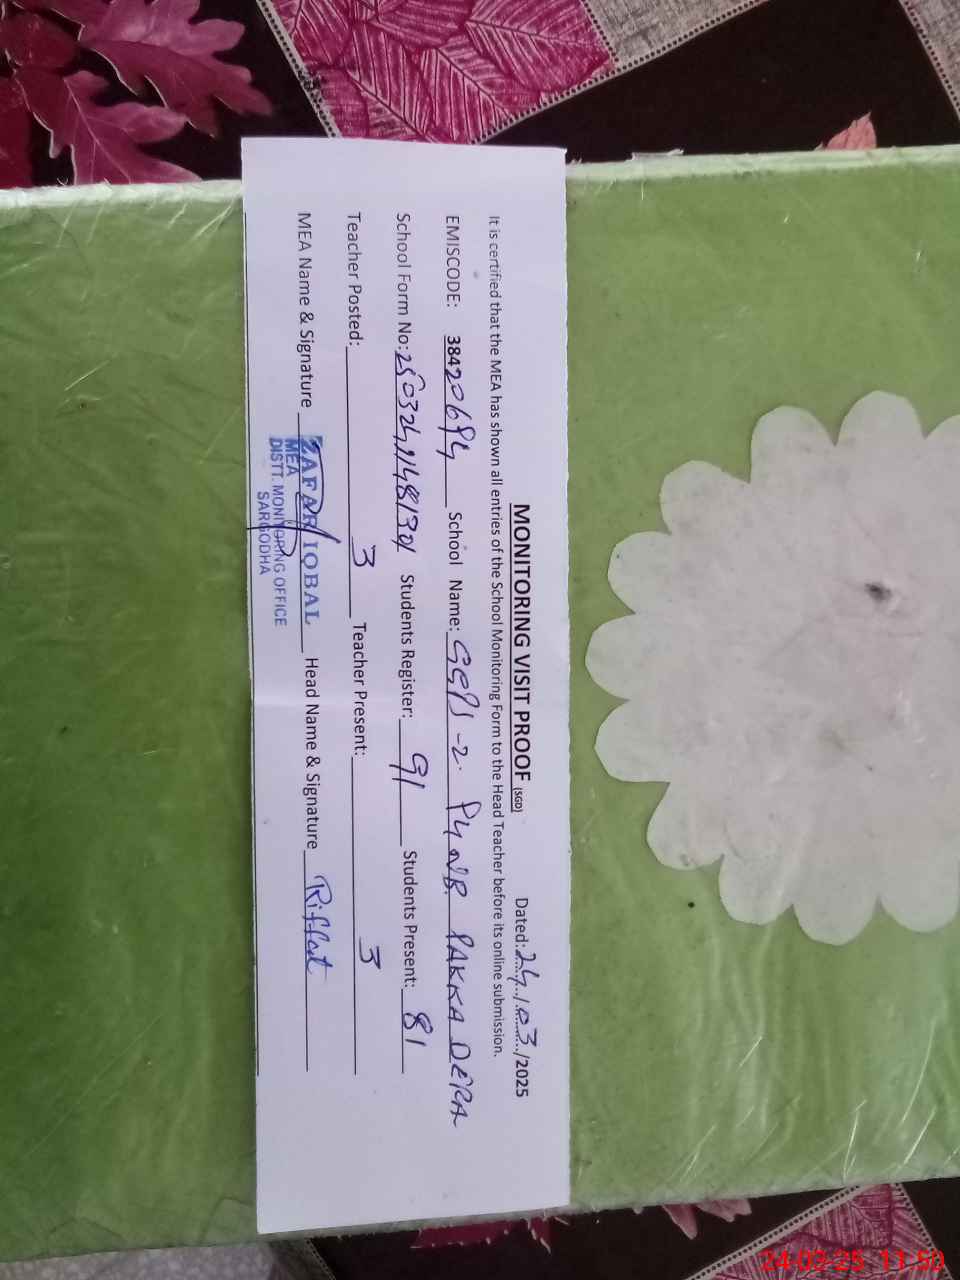 MONITORING VISIT PROOF (SGD) Dated: 24/03/2025
It is certified that the MEA has shown all entries of the School Monitoring Form to the Head Teacher before its online submission.
EMISCODE: 38420694 School Name: GGPS -2. P4 NB. PAKKA DERA
School Form No: Students Register: 91 Students Present: 81
Teacher Posted: 3 Teacher Present: 3
MEA Name & Signature ZAFAR IQBAL Head Name & Signature Riffat
MEA
DISTT. MONITORING OFFICE
SARGODHA
24-03-25 11:50